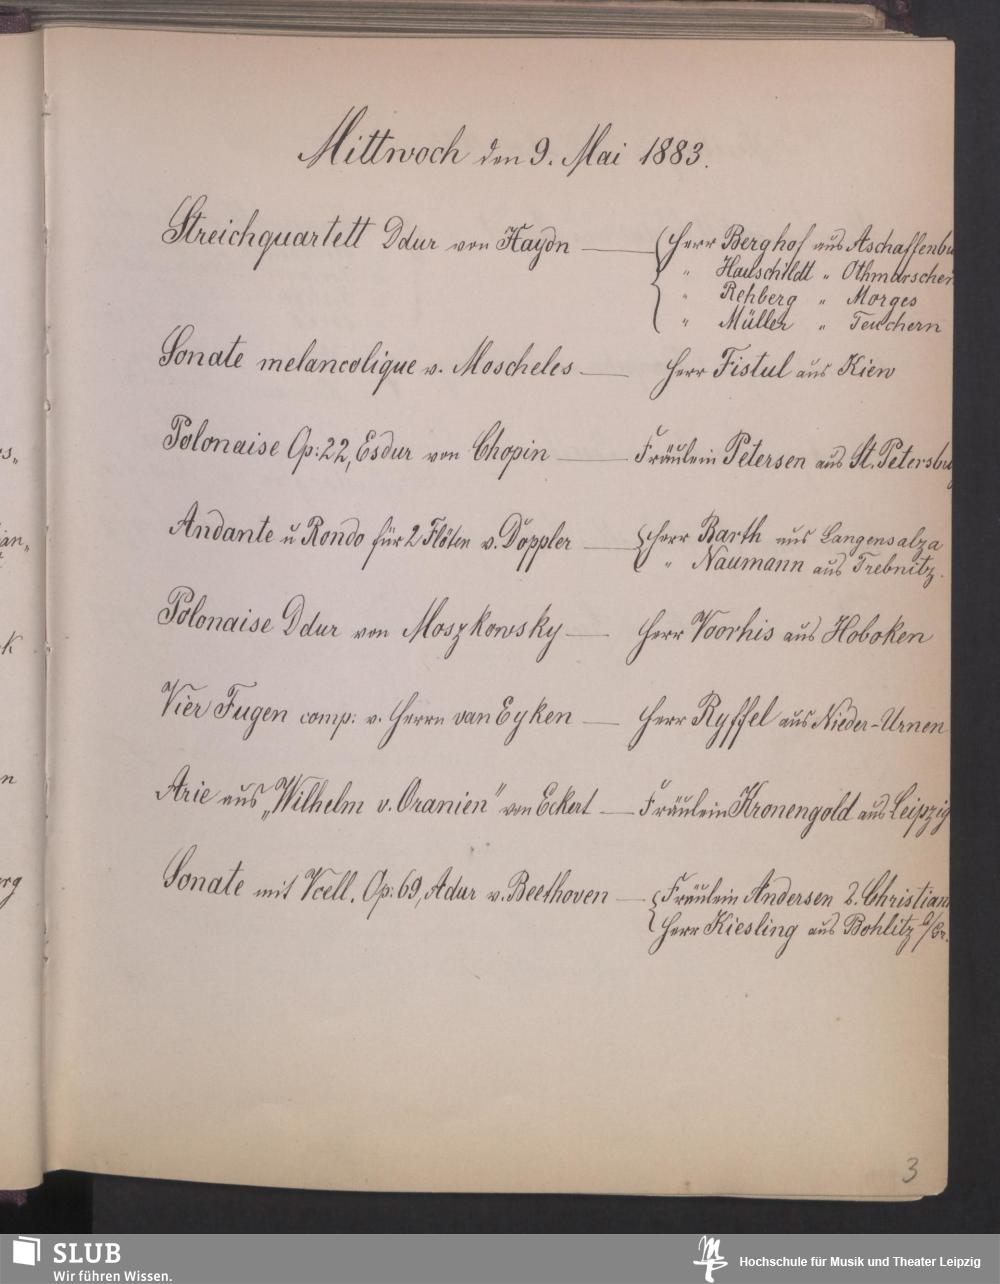 Mittwoch den 9. Mai 1883.
Streichquartett Ddur von Haydn — Herr Berghof aus Aschaffenbu
" Hauschildt " Othmarschen
" Rehberg " Morges
" Müller " Teuchern
Sonate melancolique v. Moscheles — Herr Fistul aus Kiew
Polonaise Op: 22, Esdur von Chopin — Fräulein Petersen aus St. Petersbu
Andante u Rondo für 2 Flöten v. Doppler — Herr Barth aus Langensalza
" Naumann aus Trebnitz.
Polonaise Ddur von Moszkowsky — Herr Voorhis aus Hoboken
Vier Fugen comp: v. Herrn van Eyken — Herr Ryffel aus Nieder-Urnen
Arie aus „Wilhelm v. Oranien" von Eckert — Fräulein Kronengold aus Leipzig
Sonate mit Vcell. Op: 69, Adur v. Beethoven — Fräulein Andersen 2. Christian
Herr Kiesling aus Bohlitz
3
SLUB
Wir führen Wissen.
Hochschule für Musik und Theater Leipzig